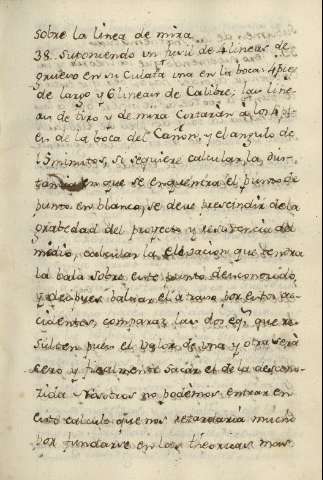 sobre la linea de mira
38. Suponiendo un fusil de 4 lineas de
grueso en su culata una en la boca 4 pies
de largo y 6 lineas de Calibre; las line-
as de tiro y de mira cortaràn a los 4 pi-
es de la boca del Cañon, y el angulo de
15 minutos, si se quiere calcular la dis-
tancia em que se enquentra el punto de
punto en blanco, se deve prescindir de la
grabedad del proyecto y resistencia del
medio, calcular la elevacion que tendra
la bala sobre este punto desconocido,
y despues baluar el atraso por estos ac-
cidentes, comparar las dos eqs. que re-
sulten pues el valor de una y otra será
cero y finalmente sacar el de la descono-
cida Nosotros no podemos entrar en
este calculo que nos retardaria mucho
por fundarse en las theoricas mas